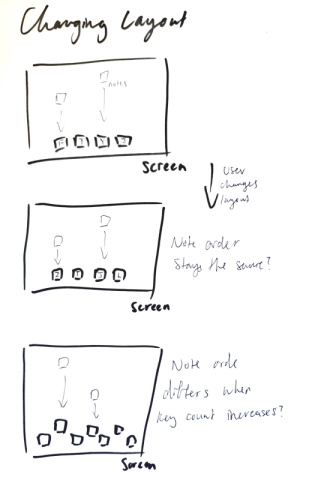 Changing Layout
notes
Screen
User
changes
layout
Note order
Stays the same?
Screen
Note orde
differs when
key count increases?
Screen